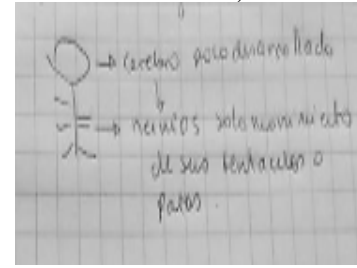 cerebro poco desarrollado
nervios solo movimiento
de sus tentaculos o
patas.